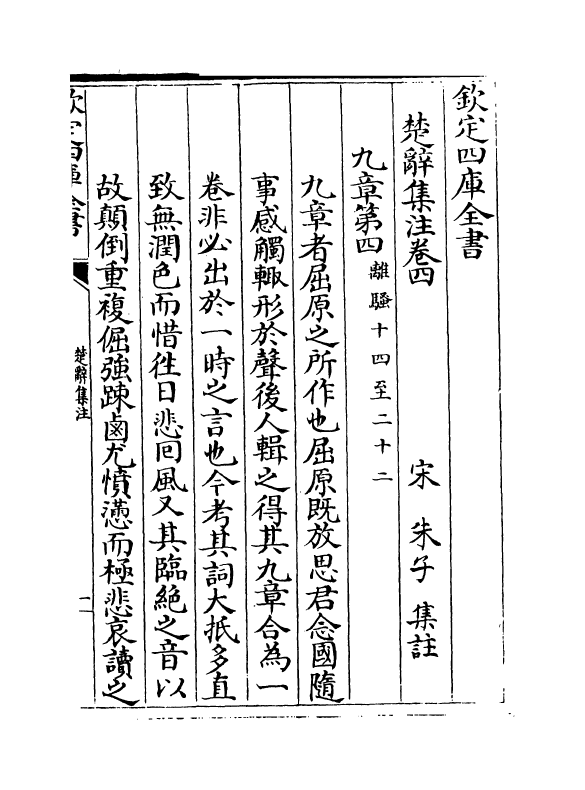 欽定四庫全書
楚辭集注卷四
宋 朱子 集註
九章第四 離騷十四至二十二
九章者屈原之所作也屈原既放思君念國隨
事感觸輒形於聲後人輯之得其九章合為一
卷非必出於一時之言也今考其詞大抵多直
致無潤色而惜徃日悲囘風又其臨絶之音以
故顛倒重複倔強踈鹵尤憤懣而極悲哀讀之
欽定四庫全書
楚辭集注
一